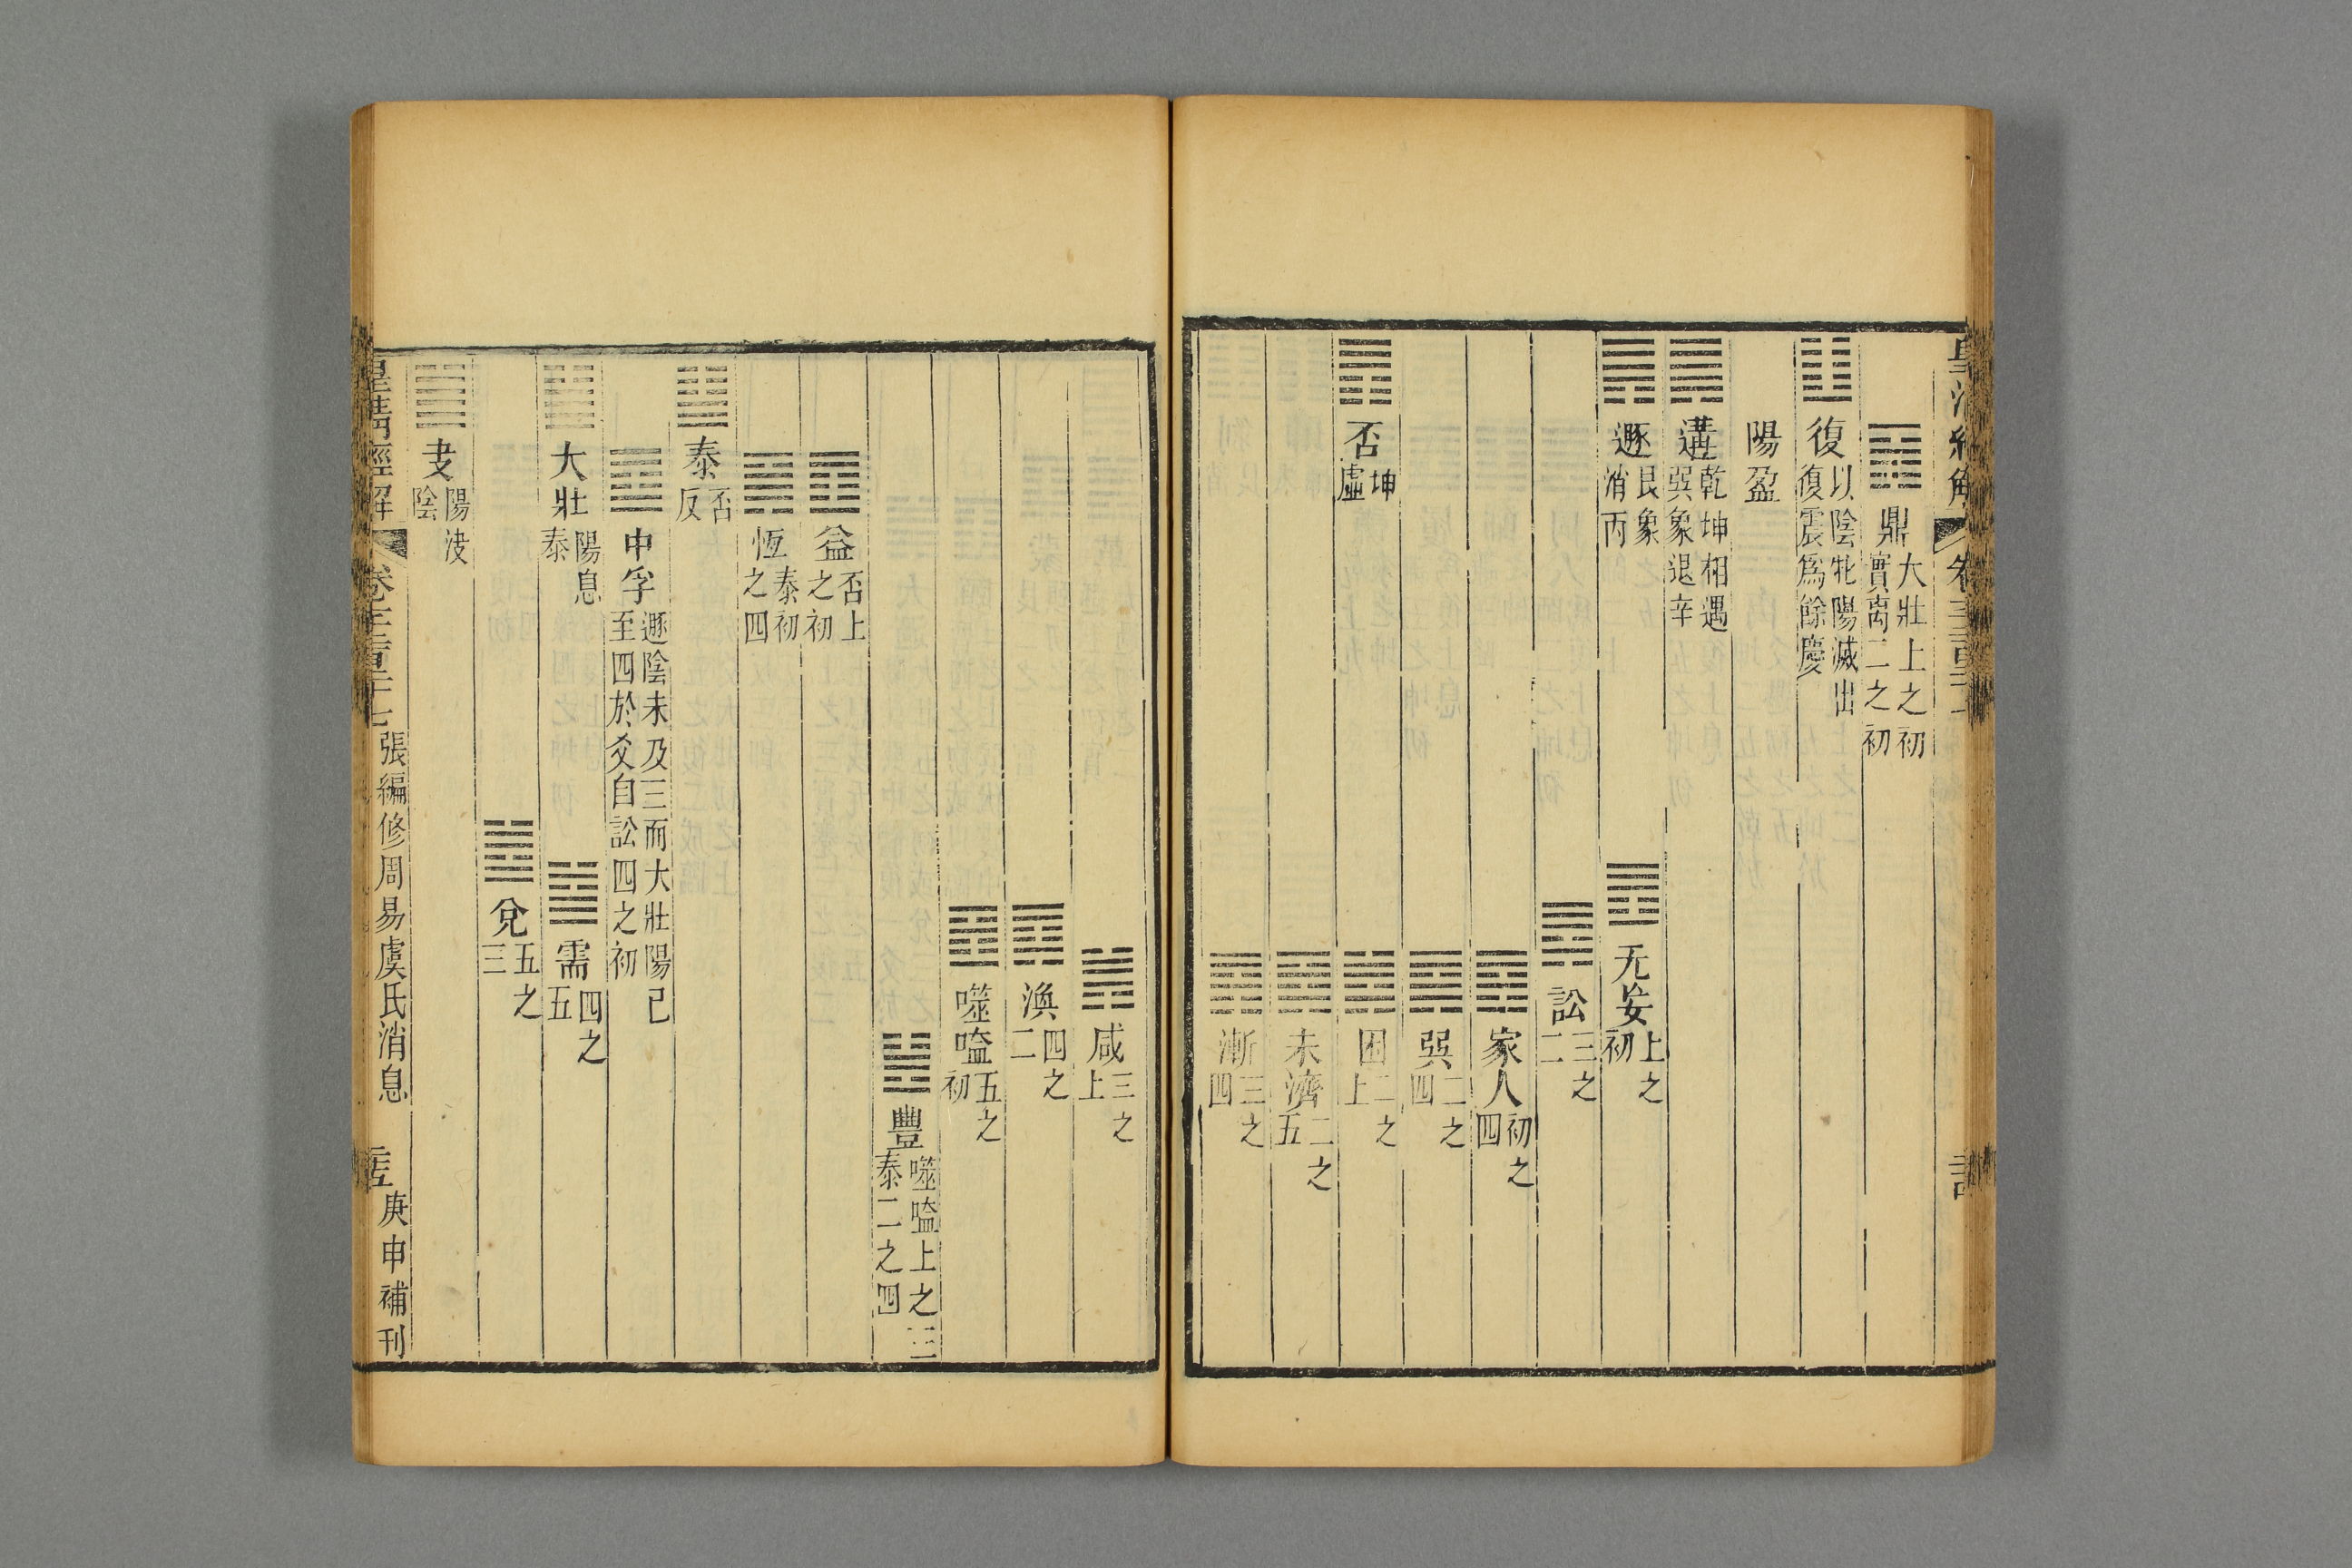 皇清經解
卷三百二十七
鼎大壯上之初實离二之初
復以陰牝陽滅出復震爲餘慶
陽盈
遘乾坤相遇巽象退辛
遯艮象消丙
无妄上之初
訟三之二
家人初之四
巽二之四
否坤虛
困二之上
未濟二之五
漸三之四
咸三之上
渙四之二
噬嗑五之初
豐噬嗑上之三泰二之四
益否上之初
恆泰初之四
泰否反
中孚遯陰未及三而大壯陽已至四於爻自訟四之初
大壯陽息泰
需四之五
兌五之三
夬陽決陰
皇清經解
卷三百二十七
張編修周易虞氏消息
庚申補刊